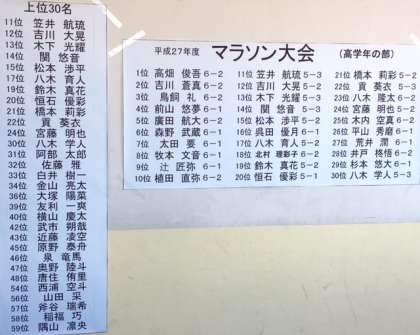 上位30名
11位 笠井 航琉
12位 吉川 大晃
13位 木下 光耀
14位 関 悠音
15位 松本 渉平
17位 八木 育人
19位 鈴木 真花
20位 恒石 優彩
21位 橋本 莉彩
22位 貢 葵衣
24位 宮藤 明也
30位 八木 学人
31位 阿部 太郎
32位 佐藤 雅
33位 白井 樹一
34位 金山 亮太
36位 大塚 陽菜
39位 友利 一爽
40位 横山 慶太
42位 武市 朔哉
43位 近藤 凌空
45位 原野 泰舟
46位 泉 竜馬
47位 奥野 陸斗
48位 唐住 侑里
54位 西浦 空斗
56位 山田 采
57位 斧谷 瑞希
58位 稲福 巧
59位 隅山 凛央
平成27年度 マラソン大会 (高学年の部)
1位 高畑 俊吾 6-2
2位 吉川 蒼真 6-2
3位 鳥飼 礼 6-2
4位 前山 悠夢 6-1
5位 廣田 航大 6-2
6位 森野 武蔵 6-1
7位 太田 要 6-1
8位 牧本 文音 6-1
9位 辻 匠弥 6-1
10位 植田 直弥 6-2
11位 笠井 航琉 5-3
12位 吉川 大晃 5-3
13位 木下 光耀 5-3
14位 関 悠音 5-3
15位 松本 渉平 5-2
16位 呉田 優月 6-1
17位 八木 育人 5-2
18位 北村 理彩子 6-2
19位 鈴木 真花 5-2
20位 恒石 優彩 5-1
21位 橋本 莉彩 5-2
22位 貢 葵衣 5-3
23位 八木 隆太 6-2
24位 宮藤 明也 5-2
25位 木内 空真 6-2
26位 平山 秀磨 6-1
27位 荒井 潤 6-1
28位 井戸 柊悟 6-2
29位 杉本 悠大 6-1
30位 八木 学人 5-3